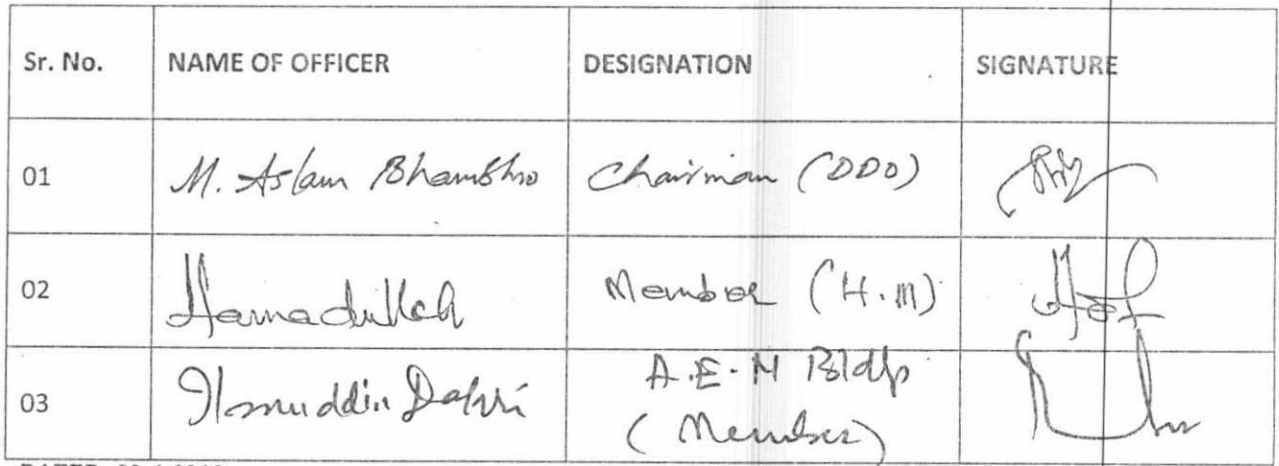 Sr. No. NAME OF OFFICER DESIGNATION SIGNATURE
01 M. Aslam Bhambhro Chairman (DDO)
02 Hamadullah Member (H.M)
03 A.E.N Bldg
(Member)